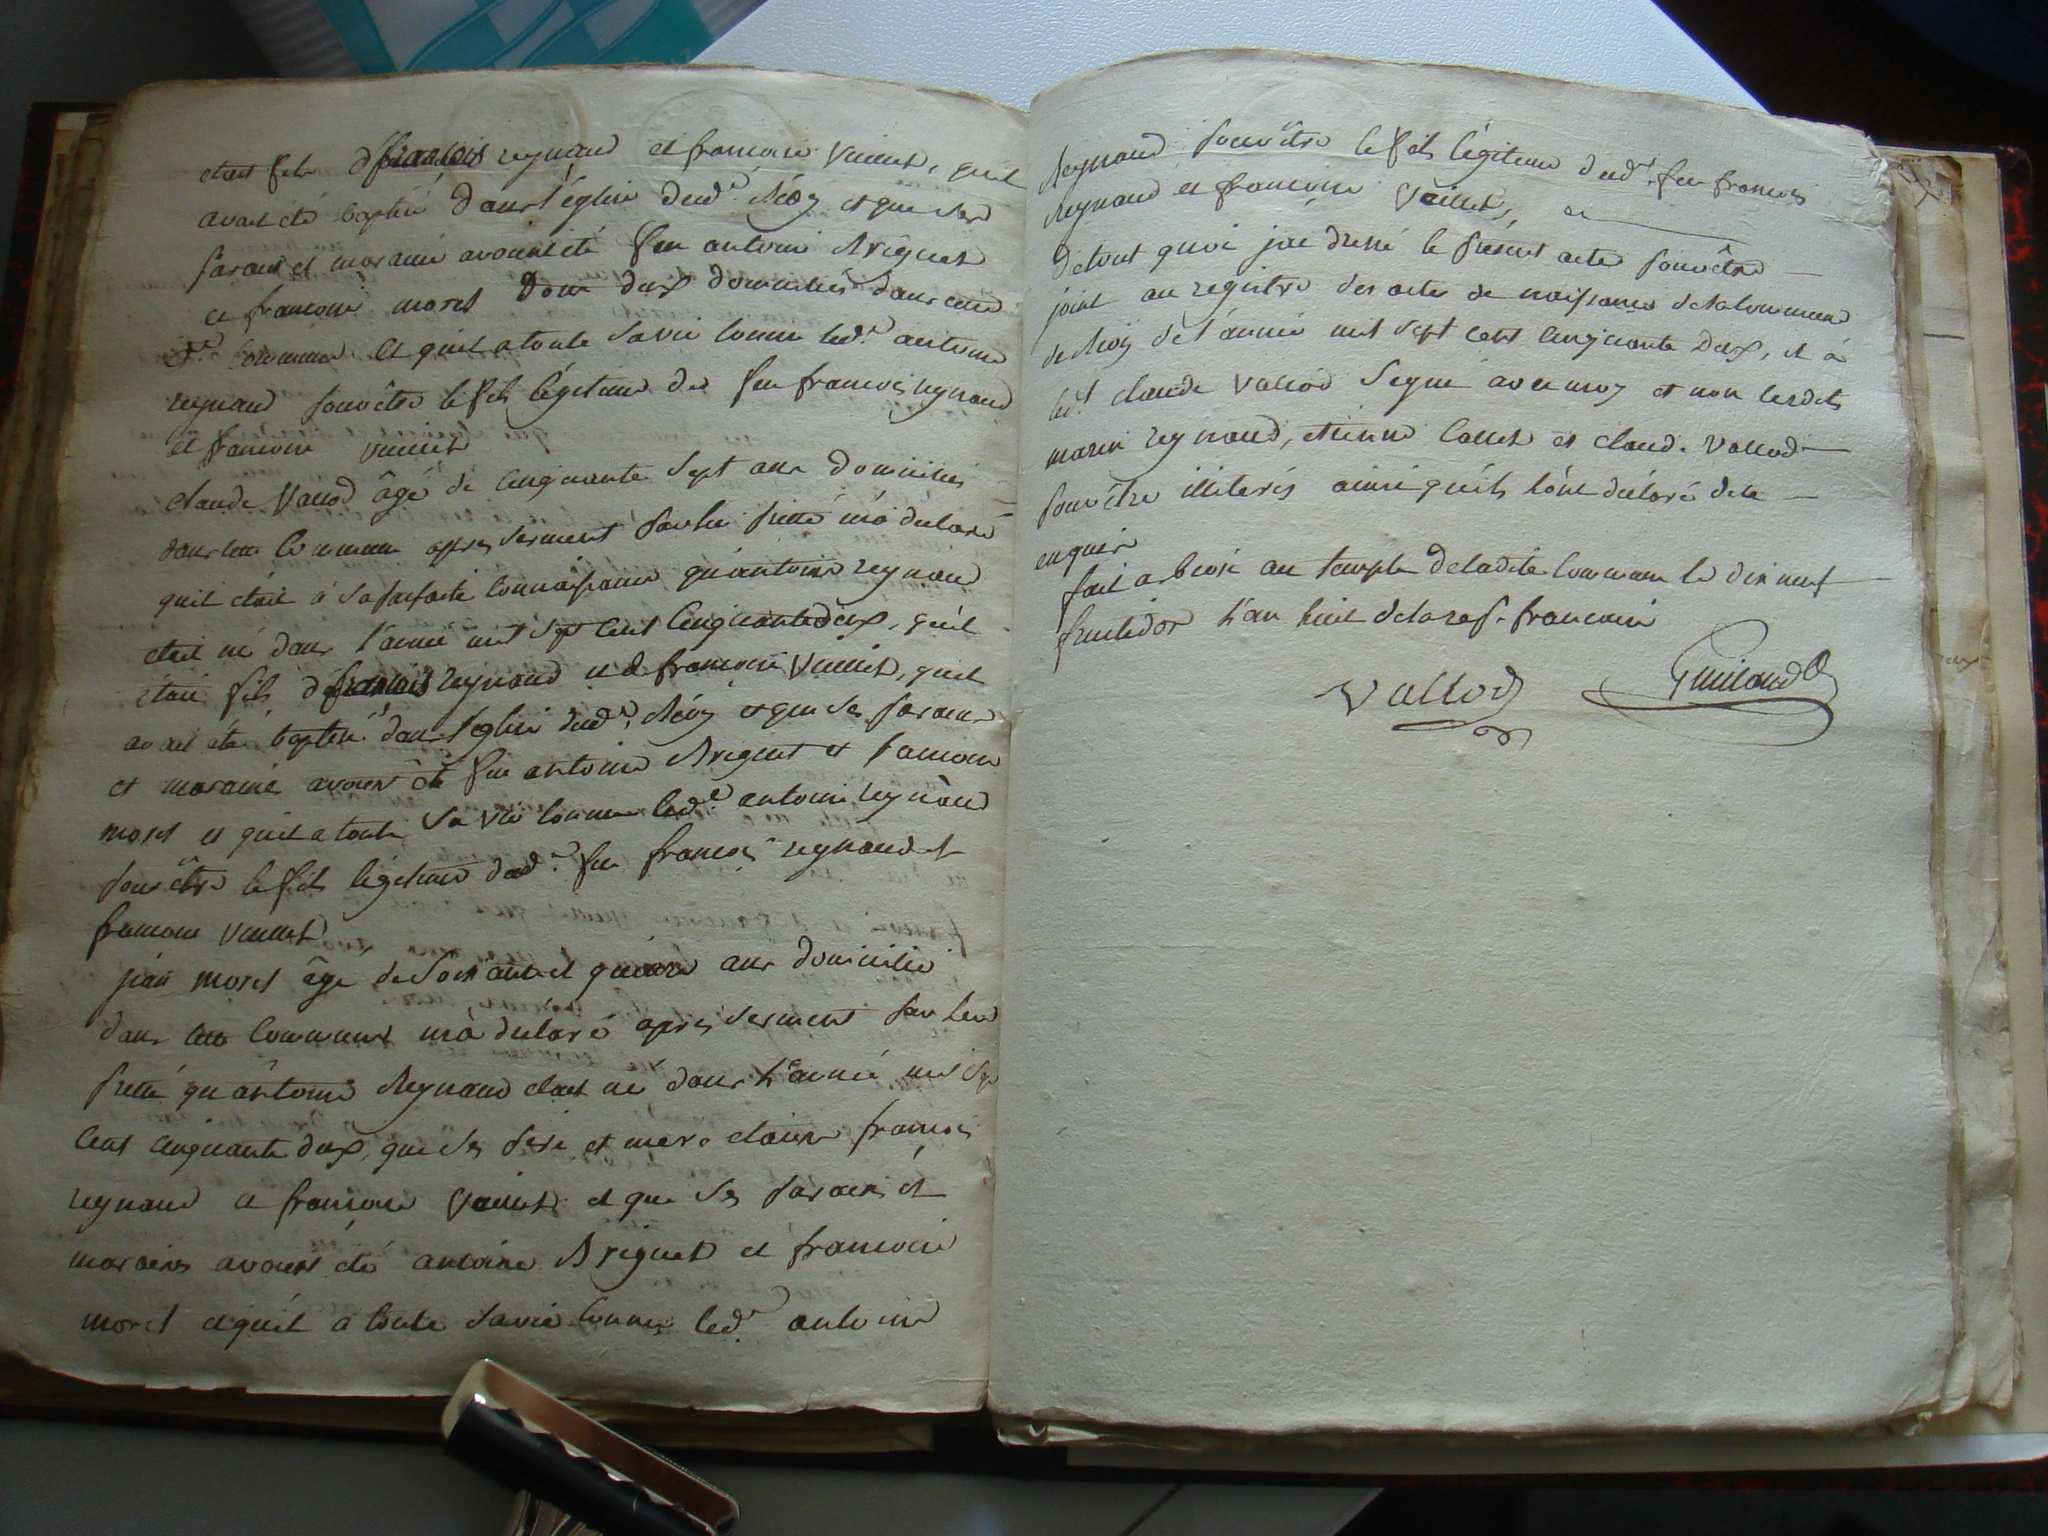 était fils d françois reynaud et francoise vincent, quil
avait été baptisé dans l'église dud.t Réoz et que ses
parain et maraine avoient été feu antoine Briguet
et francoise moret tous deux domiciliés dans cette
d.e commune et quil a toute sa vie connu led.t antoine
reynaud pour être le fils légitime de feu francois reynaud
et francoise vincent
claude Vallod âgé de cinquante sept ans domicilié
dans cette commune apres serment par lui prêté m'a déclaré
quil était à sa parfaite connaissance qu'antoine reynaud
était né dans l'année mil sept cent cinquante deux, quil
était fils d françois reynaud et d francoise vincent, quil
avait été baptisé dans l'église dud.t Réoz et que ses parain
et maraine avoient été feu antoine Briguet et francoise
moret et quil a toute sa vie connu led.t antoine reynaud
pour être le fils légitime dud.t feu francois reynaud et
francoise vincent
jean moret âgé de soixante et quinze ans domicilié
dans cette commune m'a déclaré apres serment par lui
prêté qu'antoine Reynaud était né dans l'année mil sept
cent cinquante deux, que ses pere et mere etoient francois
reynaud et francoise vincent et que ses parain et
maraine avoient été antoine Briguet et francoise
moret et quil a toute sa vie connu led.t antoine
Reynaud pour être le fils légitime dud.t feu francois
Reynaud et francoise vincent, et
de tout quoi j'ai dressé le présent acte pour être
joint au registre des actes de naissances de la commune
de Réoz de l'année mil sept cent cinquante deux, et à
led.t claude vallod signé avec moy et non lesdits
marin reynaud, etienne collet et claud. vallod
pour être illiterés ainsi quils l'ont déclaré de ce
enquis
fait a au temple de la dite commune le dix neuf
fructidor l'an huit de la rep. francoise
Vallod Guilland